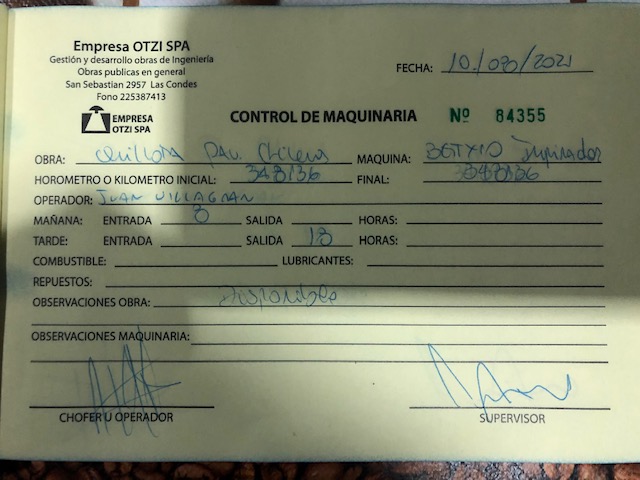 Empresa OTZI SPA
Gestión y desarrollo obras de Ingeniería
Obras publicas en general
San Sebastián 2957 Las Condes
Fono 225387413
FECHA: 10/08/2021
EMPRESA
OTZI SPA
CONTROL DE MAQUINARIA Nº 84355
OBRA: Quillota MAQUINA:
HOROMETRO O KILOMETRO INICIAL: 348136 FINAL: 348136
OPERADOR: JUAN VILLAGRAN
MAÑANA: ENTRADA 8 SALIDA HORAS:
TARDE: ENTRADA SALIDA 18 HORAS:
COMBUSTIBLE: LUBRICANTES:
REPUESTOS:
OBSERVACIONES OBRA:
OBSERVACIONES MAQUINARIA:
CHOFER U OPERADOR SUPERVISOR